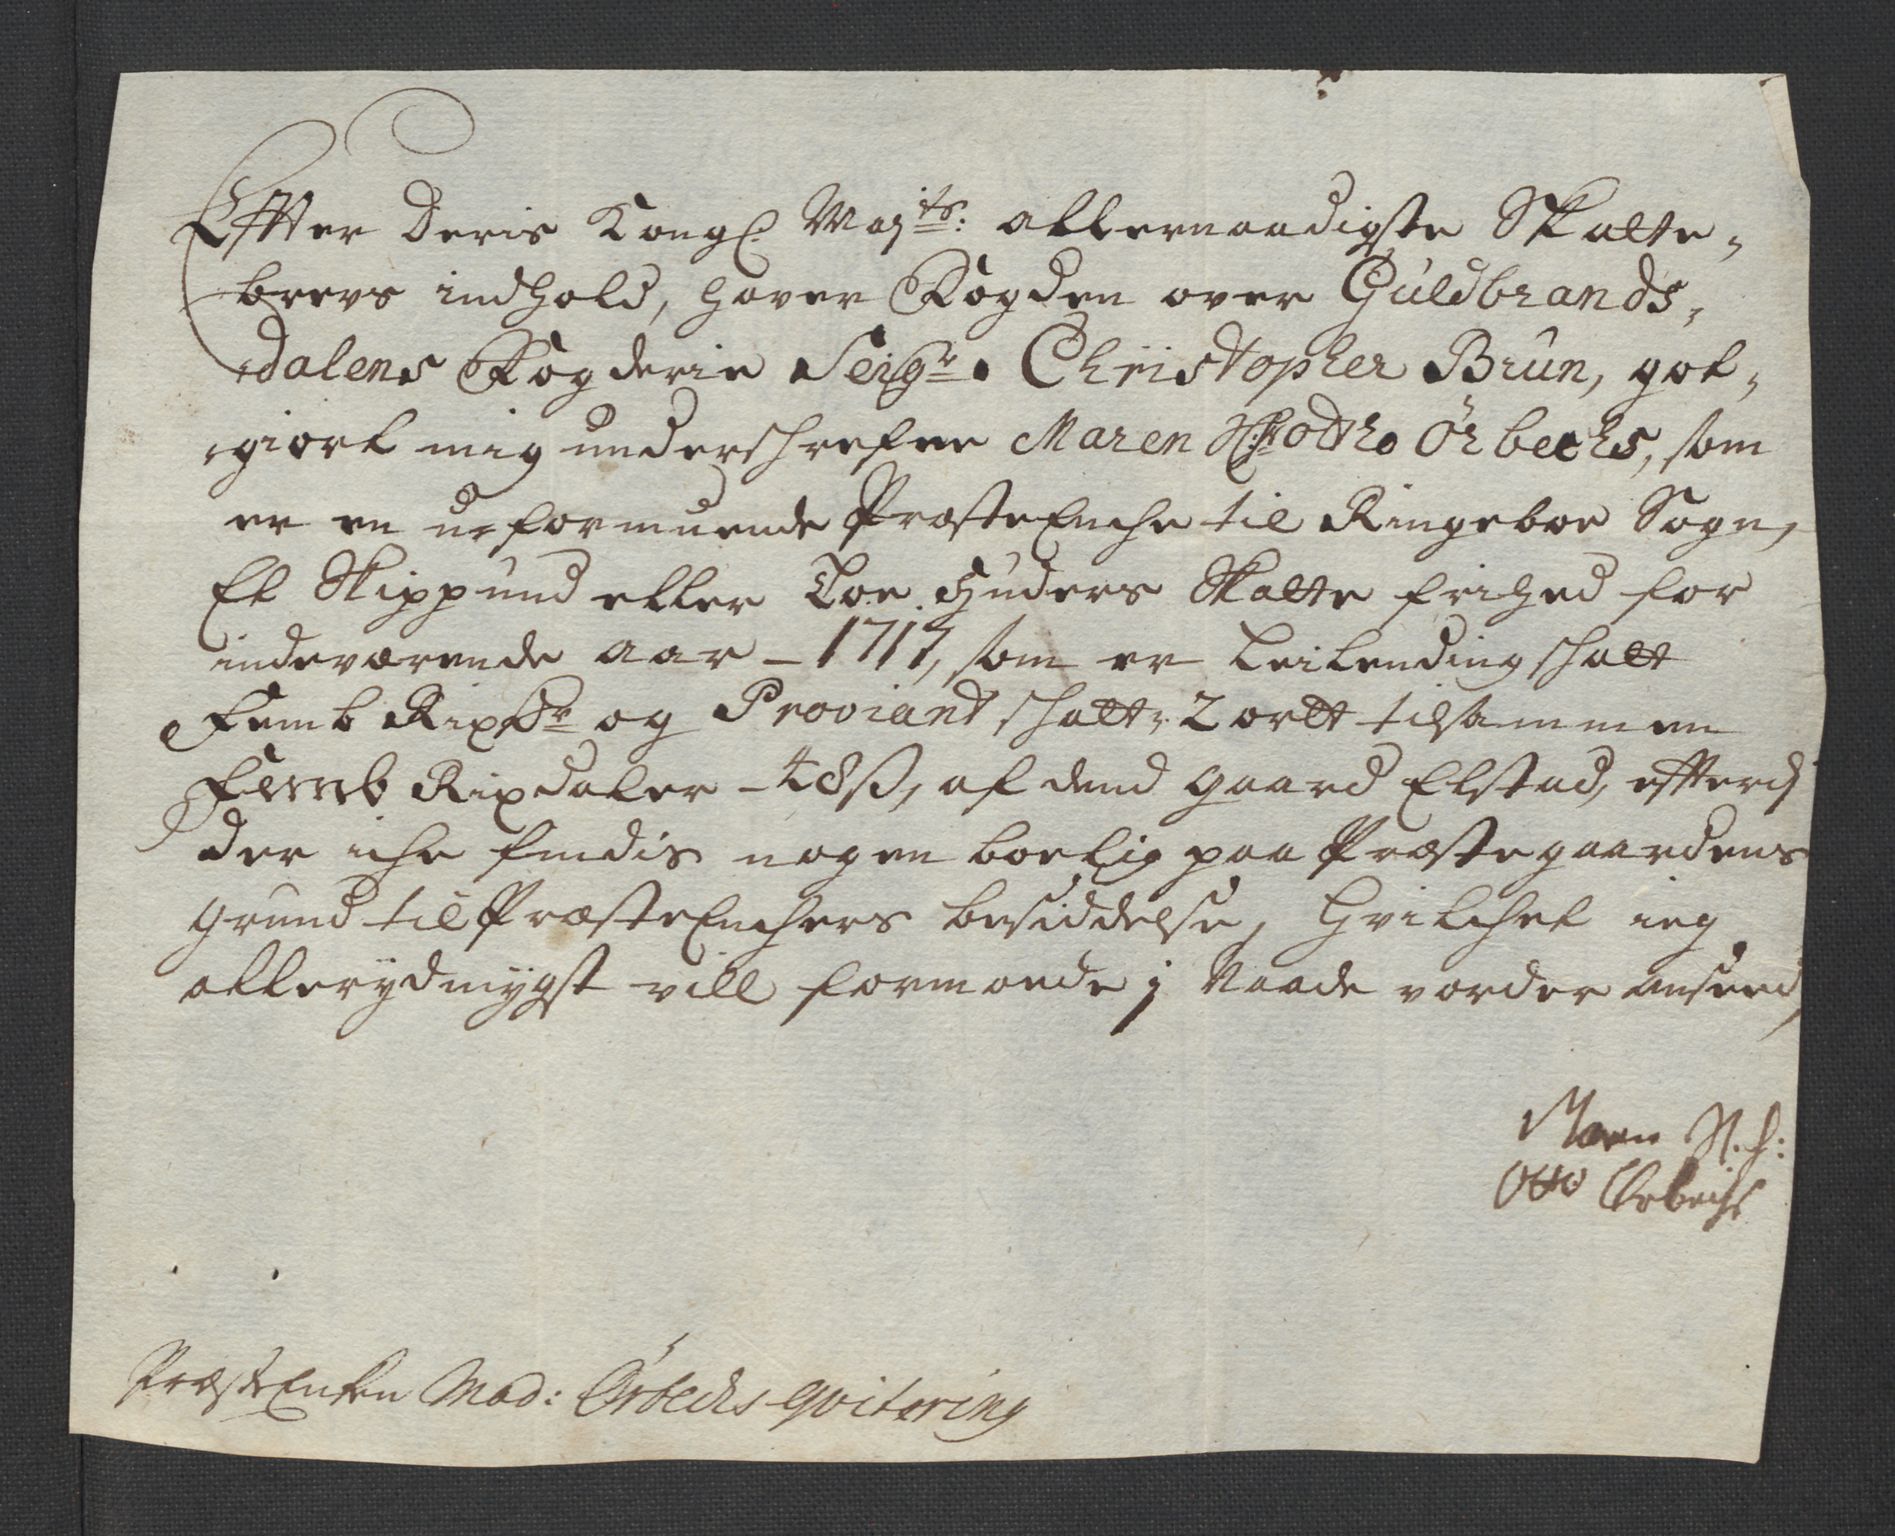 Effter Deris Kongl: Majts: allernaadigste Skatte-
brevs indhold, haver Fogden over Guldbrands-
dalens Fogderie Seigr. Christopher Brun, got-
giort mig underschrefne Maren Sl: Hr Otho Örbechs, som
er en uformuende Præste Enche til Ringeboe Sogn,
Et Skippund eller Toe huders Skatte frihed for
indeværende aar - 1717, som er Leilending schatt
Femb Rixdr og Proviant schatt, 2 ortt tilsammen
Femb Rixdaler - 48 ß, af dend gaard Elstad, efterdj
der iche findis nogen boelig paa Præstegaardens
grund til Præste Enchers besiddelse, Hvilchet ieg
allerydmygst vill formoede j Naade vorder anseed,
Maren S. H:
Otto Örbechs
Præste Enken Mad: Örbechs qvitering